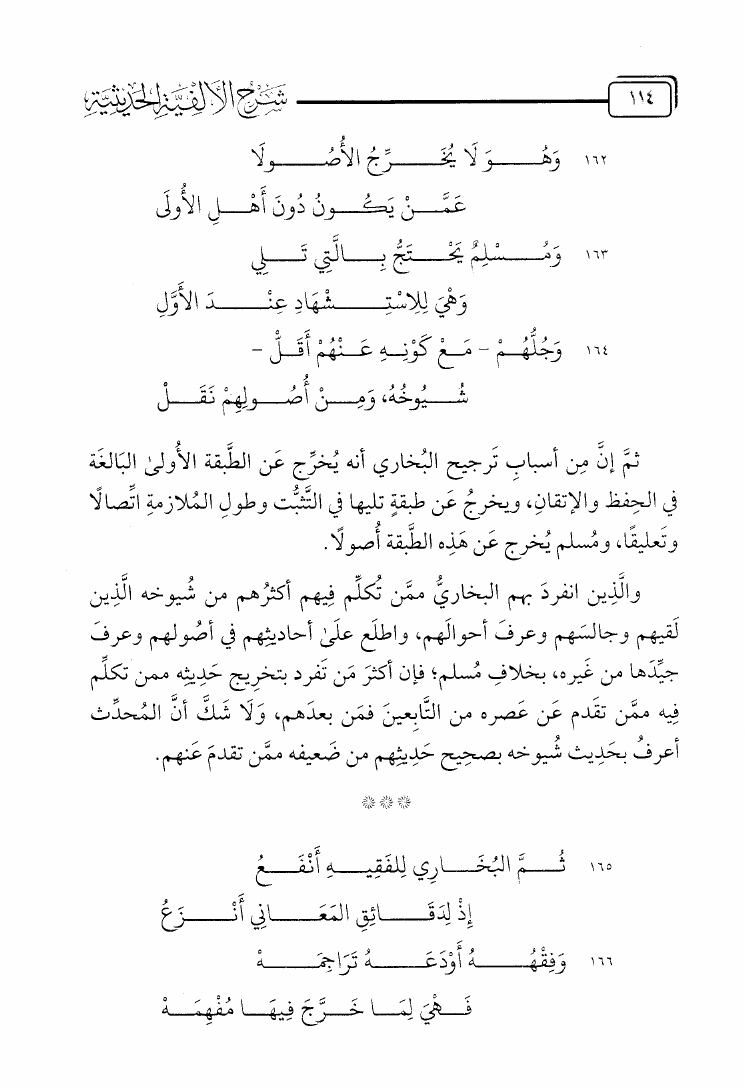 ١١٤
شرح الألفية الحديثية
١٦٢ وَهُوَ لَا يُخَرِّجُ الأُصُولَا
عَمَّنْ يَكُونُ دُونَ أَهْلِ الأُولَى
١٦٣ وَمُسْلِمٌ يَحْتَجُّ بِالَّتِي تَلِي
وَهْيَ لِلِاسْتِشْهَادِ عِنْدَ الأَوَّلِ
١٦٤ وَجُلُّهُمْ - مَعْ كَوْنِهِ عَنْهُمْ أَقَلّْ -
شُيُوخُهُ، وَمِنْ أُصُولِهِمْ نَقَلْ
ثمَّ إنَّ مِن أسبابِ تَرجيح البُخاري أنه يُخرِّج عَن الطبقة الأُولىٰ البَالغَة
في الحِفظ والإتقانِ، ويخرجُ عَن طبقةٍ تليها في التَّثبُّت وطولِ المُلازمةِ اتِّصالًا
وتَعليقًا، ومُسلم يُخرج عَن هَذِه الطَّبقة أُصولًا.
والَّذِين انفردَ بهم البخاريُّ ممَّن تُكلِّم فِيهم أكثرُهم من شُيوخه الَّذِين
لَقيهم وجالسَهم وعرفَ أحوالَهم، واطلَع علىٰ أحاديثِهم في أصُولهم وعرفَ
جيِّدَها من غَيره، بخلافِ مُسلم؛ فإن أكثرَ مَن تَفرد بتخريج حَديثِه ممن تكلِّم
فِيه ممَّن تقَدم عَن عَصره من التَّابِعينَ فمَن بعدَهم، وَلَا شكَّ أنَّ المُحدِّث
أعرفُ بحَدِيث شُيوخه بصحِيح حَديثِهم من ضَعيفه ممَّن تقدمَ عَنهم.
***
١٦٥ ثُمَّ البُخَارِي لِلفَقِيهِ أَنْفَعُ
إِذْ لِدَقَائِقِ المَعَانِي أَنْزَعُ
١٦٦ وَفِقْهُهُ أَوْدَعَهُ تَرَاجِمَهْ
فَهْيَ لِمَا خَرَّجَ فِيهَا مُفْهِمَهْ